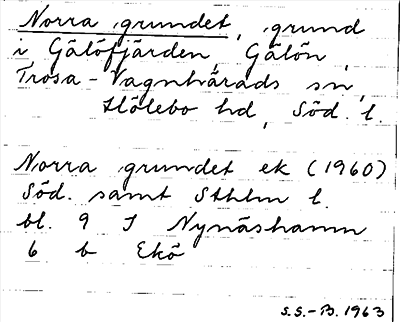 Norra grundet, grund
i Gälöfjärden, Gälön,
Trosa-Vagnhärads sn,
Hölebo hd, Söd. l.
Norra grundet ek (1960)
Söd. samt Sthlm l.
bl. 9 I Nynäshamn
6 b Ekö
S.S.-B. 1963